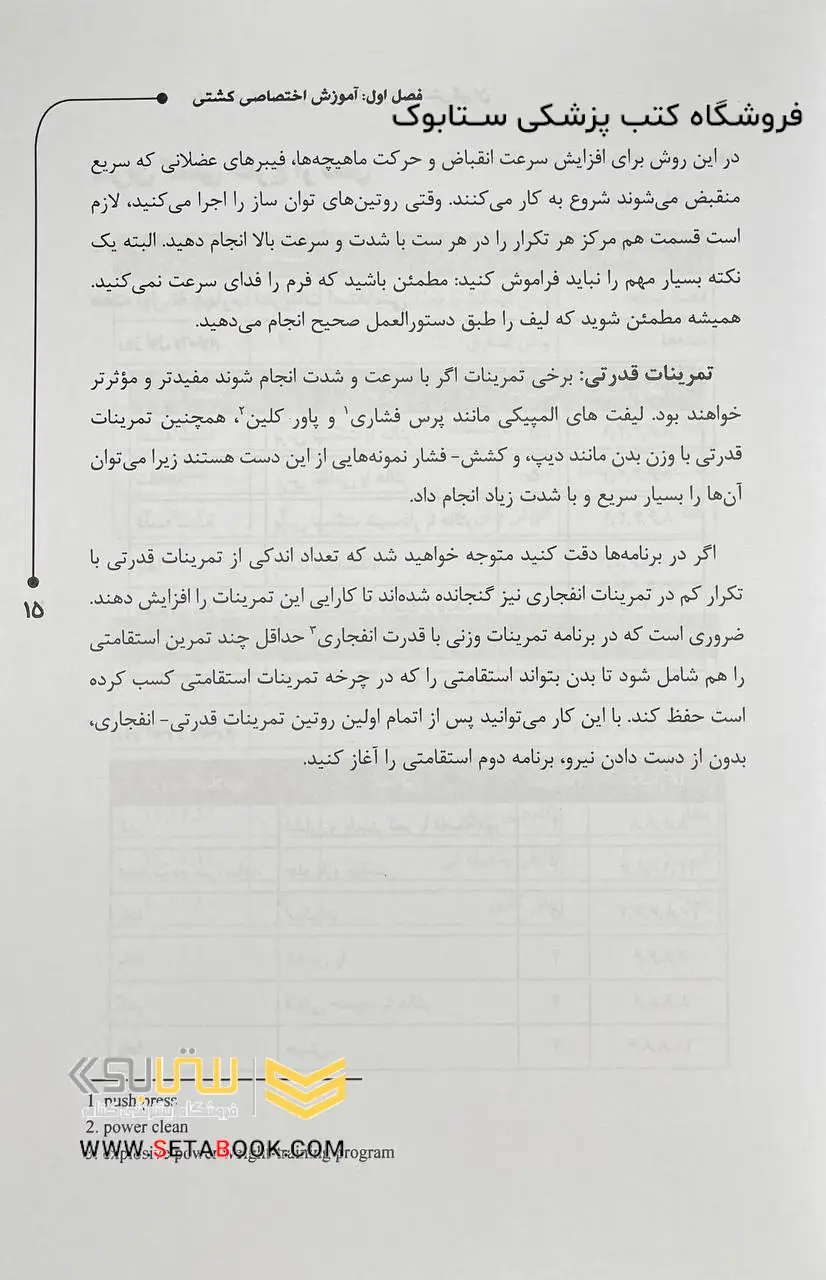 فصل اول: آموزش اختصاصی کشتی
فروشگاه کتب پزشکی ســتابوک
در این روش برای افزایش سرعت انقباض و حرکت ماهیچه‌ها، فیبرهای عضلانی که سریع
منقبض می‌شوند شروع به کار می‌کنند. وقتی روتین‌های توان ساز را اجرا می‌کنید، لازم
است قسمت هم مرکز هر تکرار را در هر ست با شدت و سرعت بالا انجام دهید. البته یک
نکته بسیار مهم را نباید فراموش کنید: مطمئن باشید که فرم را فدای سرعت نمی‌کنید.
همیشه مطمئن شوید که لیف را طبق دستورالعمل صحیح انجام می‌دهید.
تمرینات قدرتی: برخی تمرینات اگر با سرعت و شدت انجام شوند مفیدتر و مؤثرتر
خواهند بود. لیفت های المپیکی مانند پرس فشاری۱ و پاور کلین۲، همچنین تمرینات
قدرتی با وزن بدن مانند دیپ، و کشش- فشار نمونه‌هایی از این دست هستند زیرا می‌توان
آن‌ها را بسیار سریع و با شدت زیاد انجام داد.
اگر در برنامه‌ها دقت کنید متوجه خواهید شد که تعداد اندکی از تمرینات قدرتی با
تکرار کم در تمرینات انفجاری نیز گنجانده شده‌اند تا کارایی این تمرینات را افزایش دهند.
ضروری است که در برنامه تمرینات وزنی با قدرت انفجاری۳ حداقل چند تمرین استقامتی
را هم شامل شود تا بدن بتواند استقامتی را که در چرخه تمرینات استقامتی کسب کرده
است حفظ کند. با این کار می‌توانید پس از اتمام اولین روتین تمرینات قدرتی- انفجاری،
بدون از دست دادن نیرو، برنامه دوم استقامتی را آغاز کنید.
۱۵
ستابوک
فروشگاه اینترنتی کتاب
1. push press
2. power clean
WWW.SETABOOK.COM
3. explosive power weight-training program